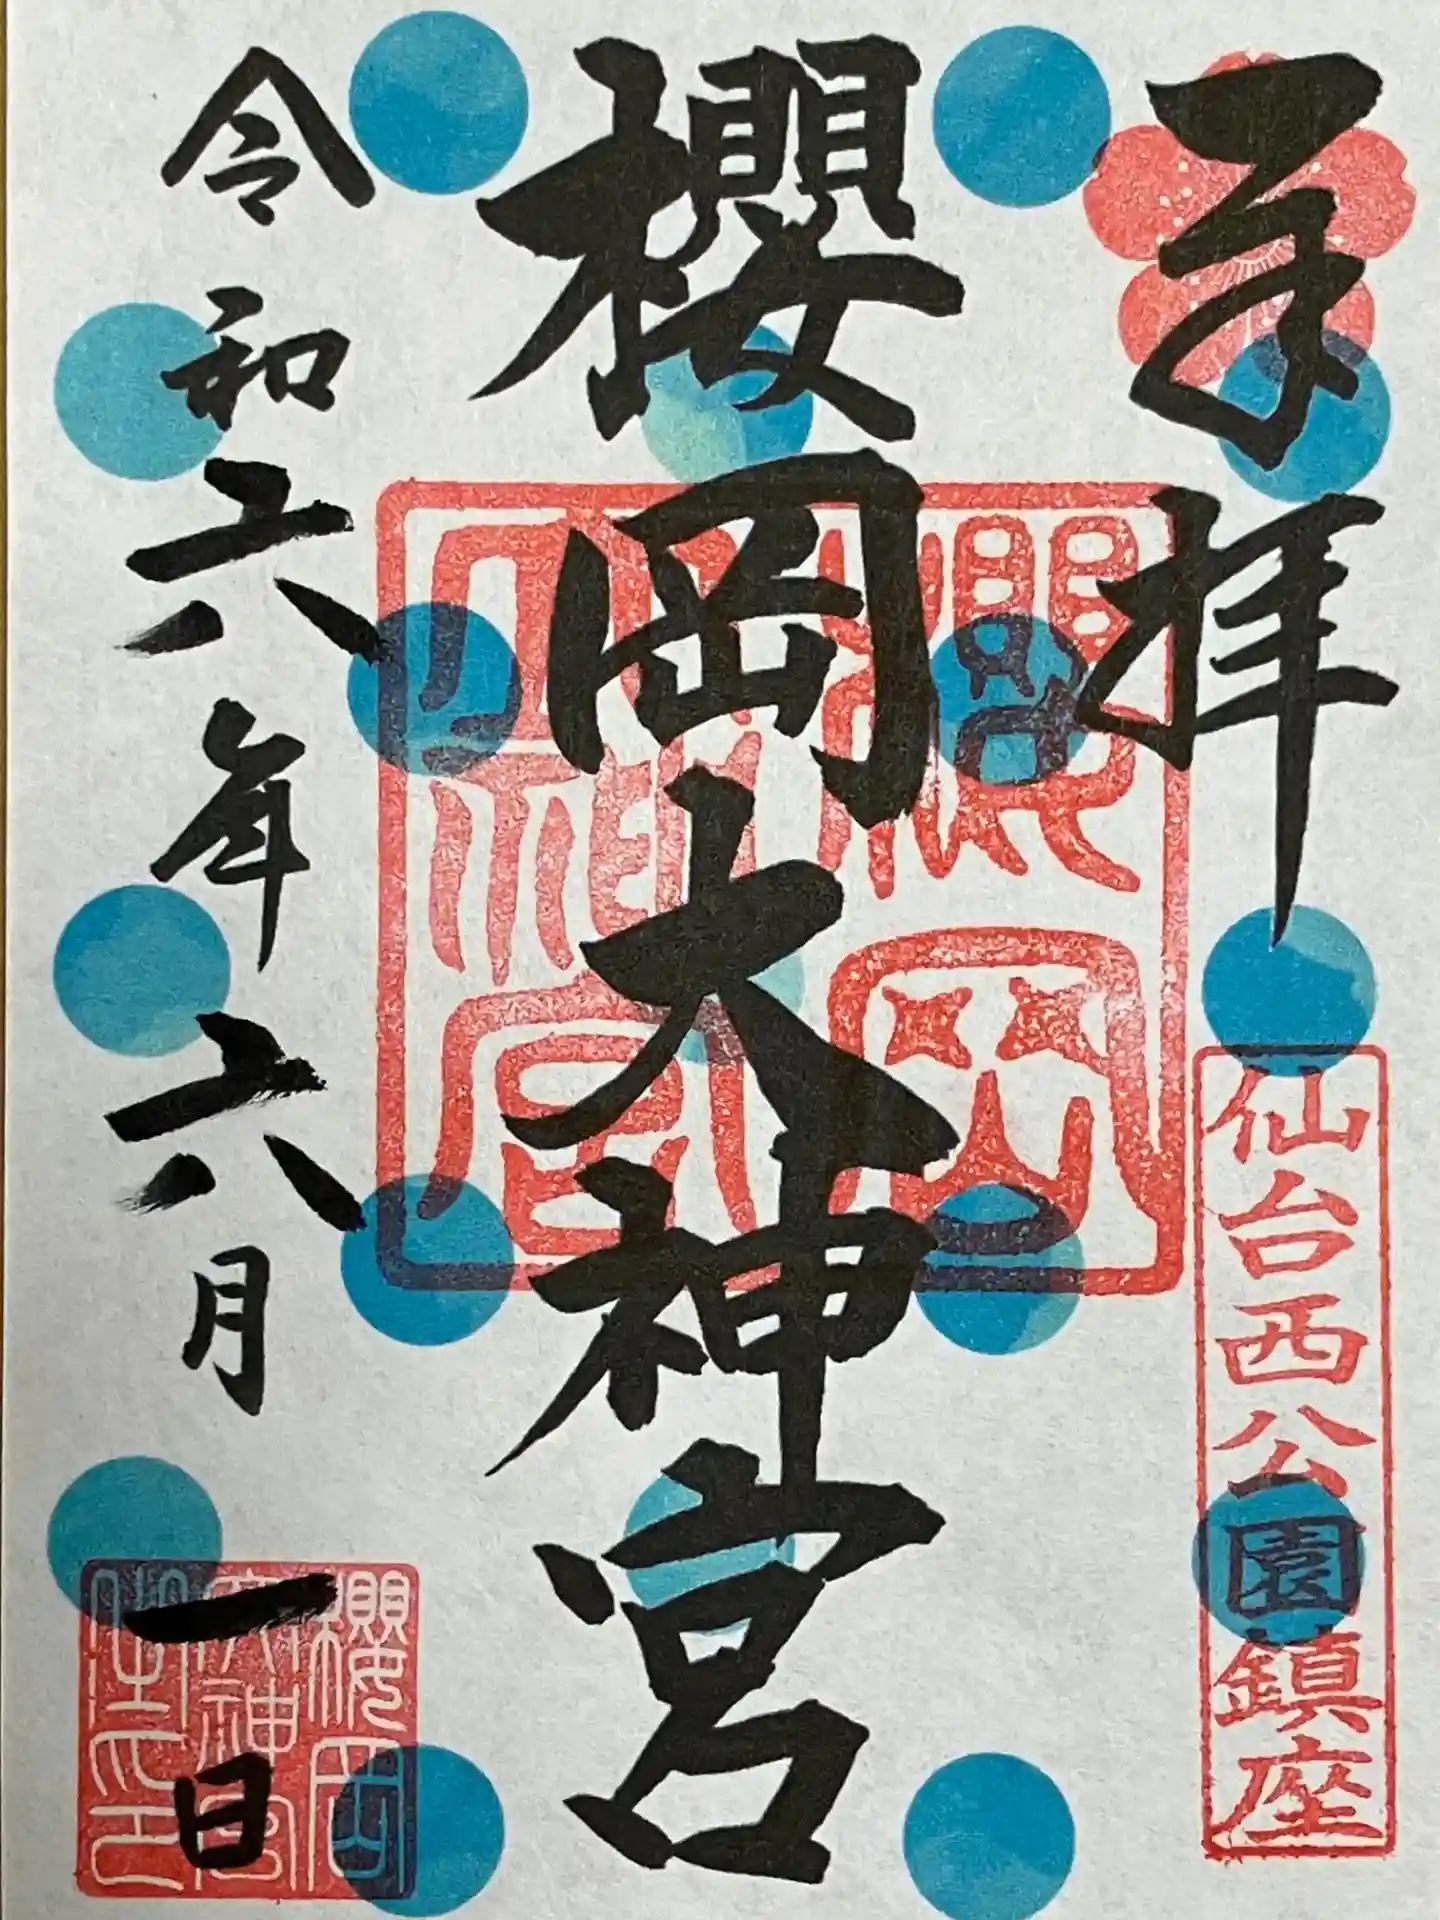 奉拝
仙台西公園鎮座
櫻岡大神宮
櫻岡
大神宮
令和六年六月一日
櫻岡
大神宮